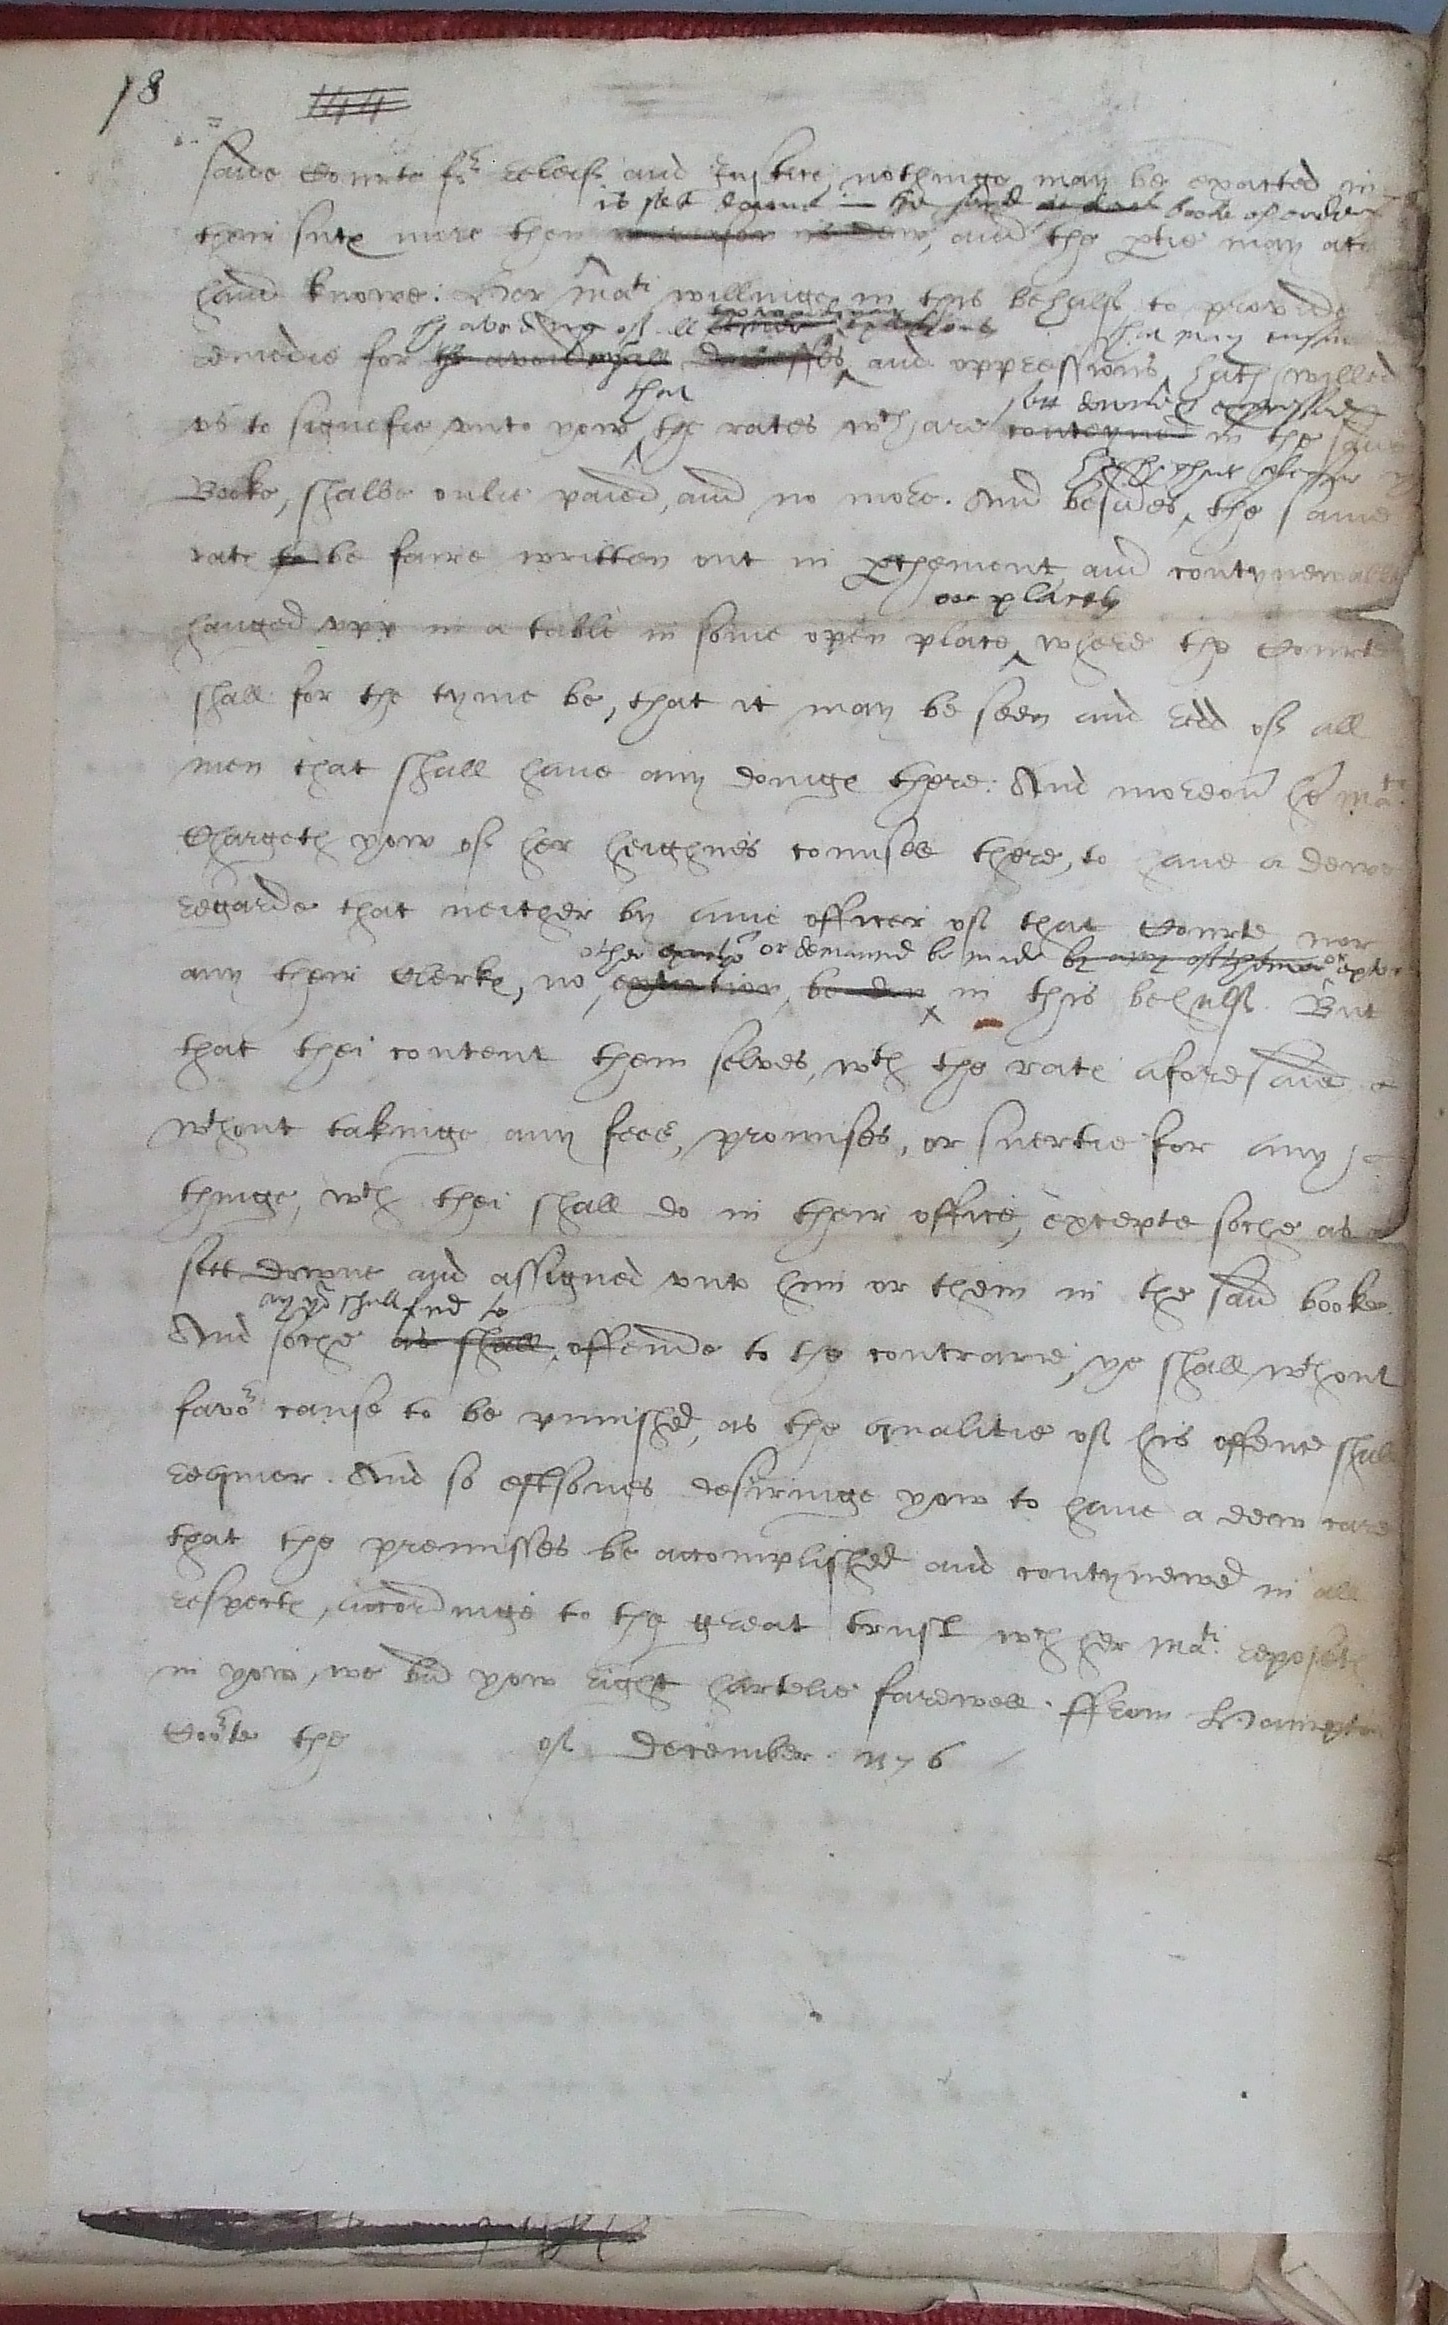 18
saide Courte for releif and Justice, nothinge may be exacted in
is sett downe in the said booke of orders
their sute more then, and the ptie may at
hand knowe: Her Matie willinge in this behalf to provide
the avoiding of all exactions that may ensue
remedie for and oppressions, hath willed
that sett downe & expressed
us to signefie unto yow, the rates wch are conteyned in the said
Booke, shalbe onlie paied, and no more. And besides, the same
rate to be faire written out in pchement, and contynewallie
or places
hanged upp in a table in some open place, where the Courte
shall for the tyme be, that it may be seen and redd of all
men that shall have any doinge there: And moreover her Matie
Chargeth yow of her heighnes counsell there, to have a dewe
regarde that neither by anie officer of that Courte, nor
other or demaund be made by any of them
any their Clerke, no exaction, be in this behalf. But
that thei content them selves, wth the rate aforesaid
wthout takinge any fees, promises, or suertie for any
thinge, wch thei shall do in their office, excepte soche as
sett downe and assigned unto him or them in the said booke.
as yow shall find to
And soche as shall offende to the contrarie, ye shall wthout
favor cause to be punished, as the qualitie of his offence shall
requier. And so eftsones desiringe yow to have a dew care
that the premisses be accomplished and contynewed in all
respecte, accordinge to the great trust wch her Matie reposeth
in yow, we bid yow right hartelie farewell. ffrom Hampton
Courte the of December. 1576